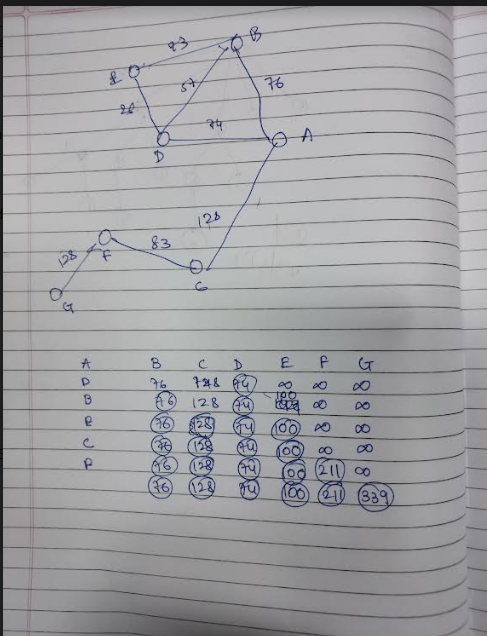 83 B
E 57 76
26
74 A
D
128
F 83
128 C
G
A B C D E F G
D 76 128 74 ∞ ∞ ∞
B 76 128 74 100 ∞ ∞
E 76 128 74 100 ∞ ∞
C 76 128 74 100 ∞ ∞
F 76 128 74 100 211 ∞
76 128 74 100 211 339